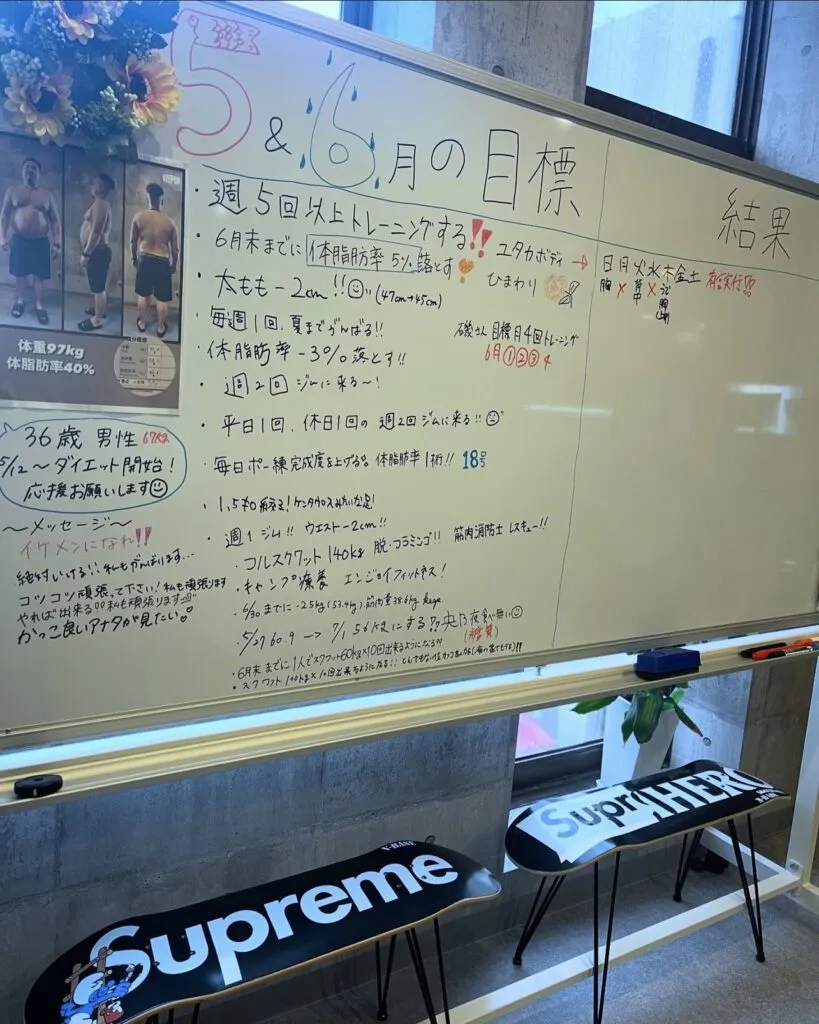 5&6月の目標
結果
・週5回以上トレーニングする!!
・6月末までに体脂肪率5%落とす
ユタカボディ→
ひまわり
日月火水木金土
胸 × 背中 ×
有言実行!!
・太もも-2cm!! (47cm→45cm)
・毎週1回、夏までがんばる!!
目標月4回トレーニング
6月①②③4
・体脂肪率-3%落とす!!
・週2回ジムに来る〜!
・平日1回、休日1回の週2回ジムに来る!!
・毎日ポー練完成度を上げる。体脂肪率1桁!! 18号
・週1ジム!! ウエスト-2cm!!
・コルスクワット140kg 脱・フラミンゴ!! 筋肉消防士 レスキュー!!
・キャンプ療養 エンジョイフィットネス!
・6/30までに-2.5kg(53.4kg).筋肉量38.6kg
・5/27 60.9→7/1 56kgにする!? 夜食べ無い
(糖質)
・6月末までに1人でスクワット60kg×10回出来るようになる!!
・スクワット100kg×10回出来るようになる!!
体重97kg
体脂肪率40%
36歳 男性
5/12〜ダイエット開始!
応援お願いします
〜メッセージ〜
イケメンになれ!!
絶対いける!!私もがんばります...
コツコツ頑張って下さい!私も頑張ります
やれば出来る!!私も頑張ります
かっこ良いアナタが見たい
Supreme
Y-BASE
Supr
HERO